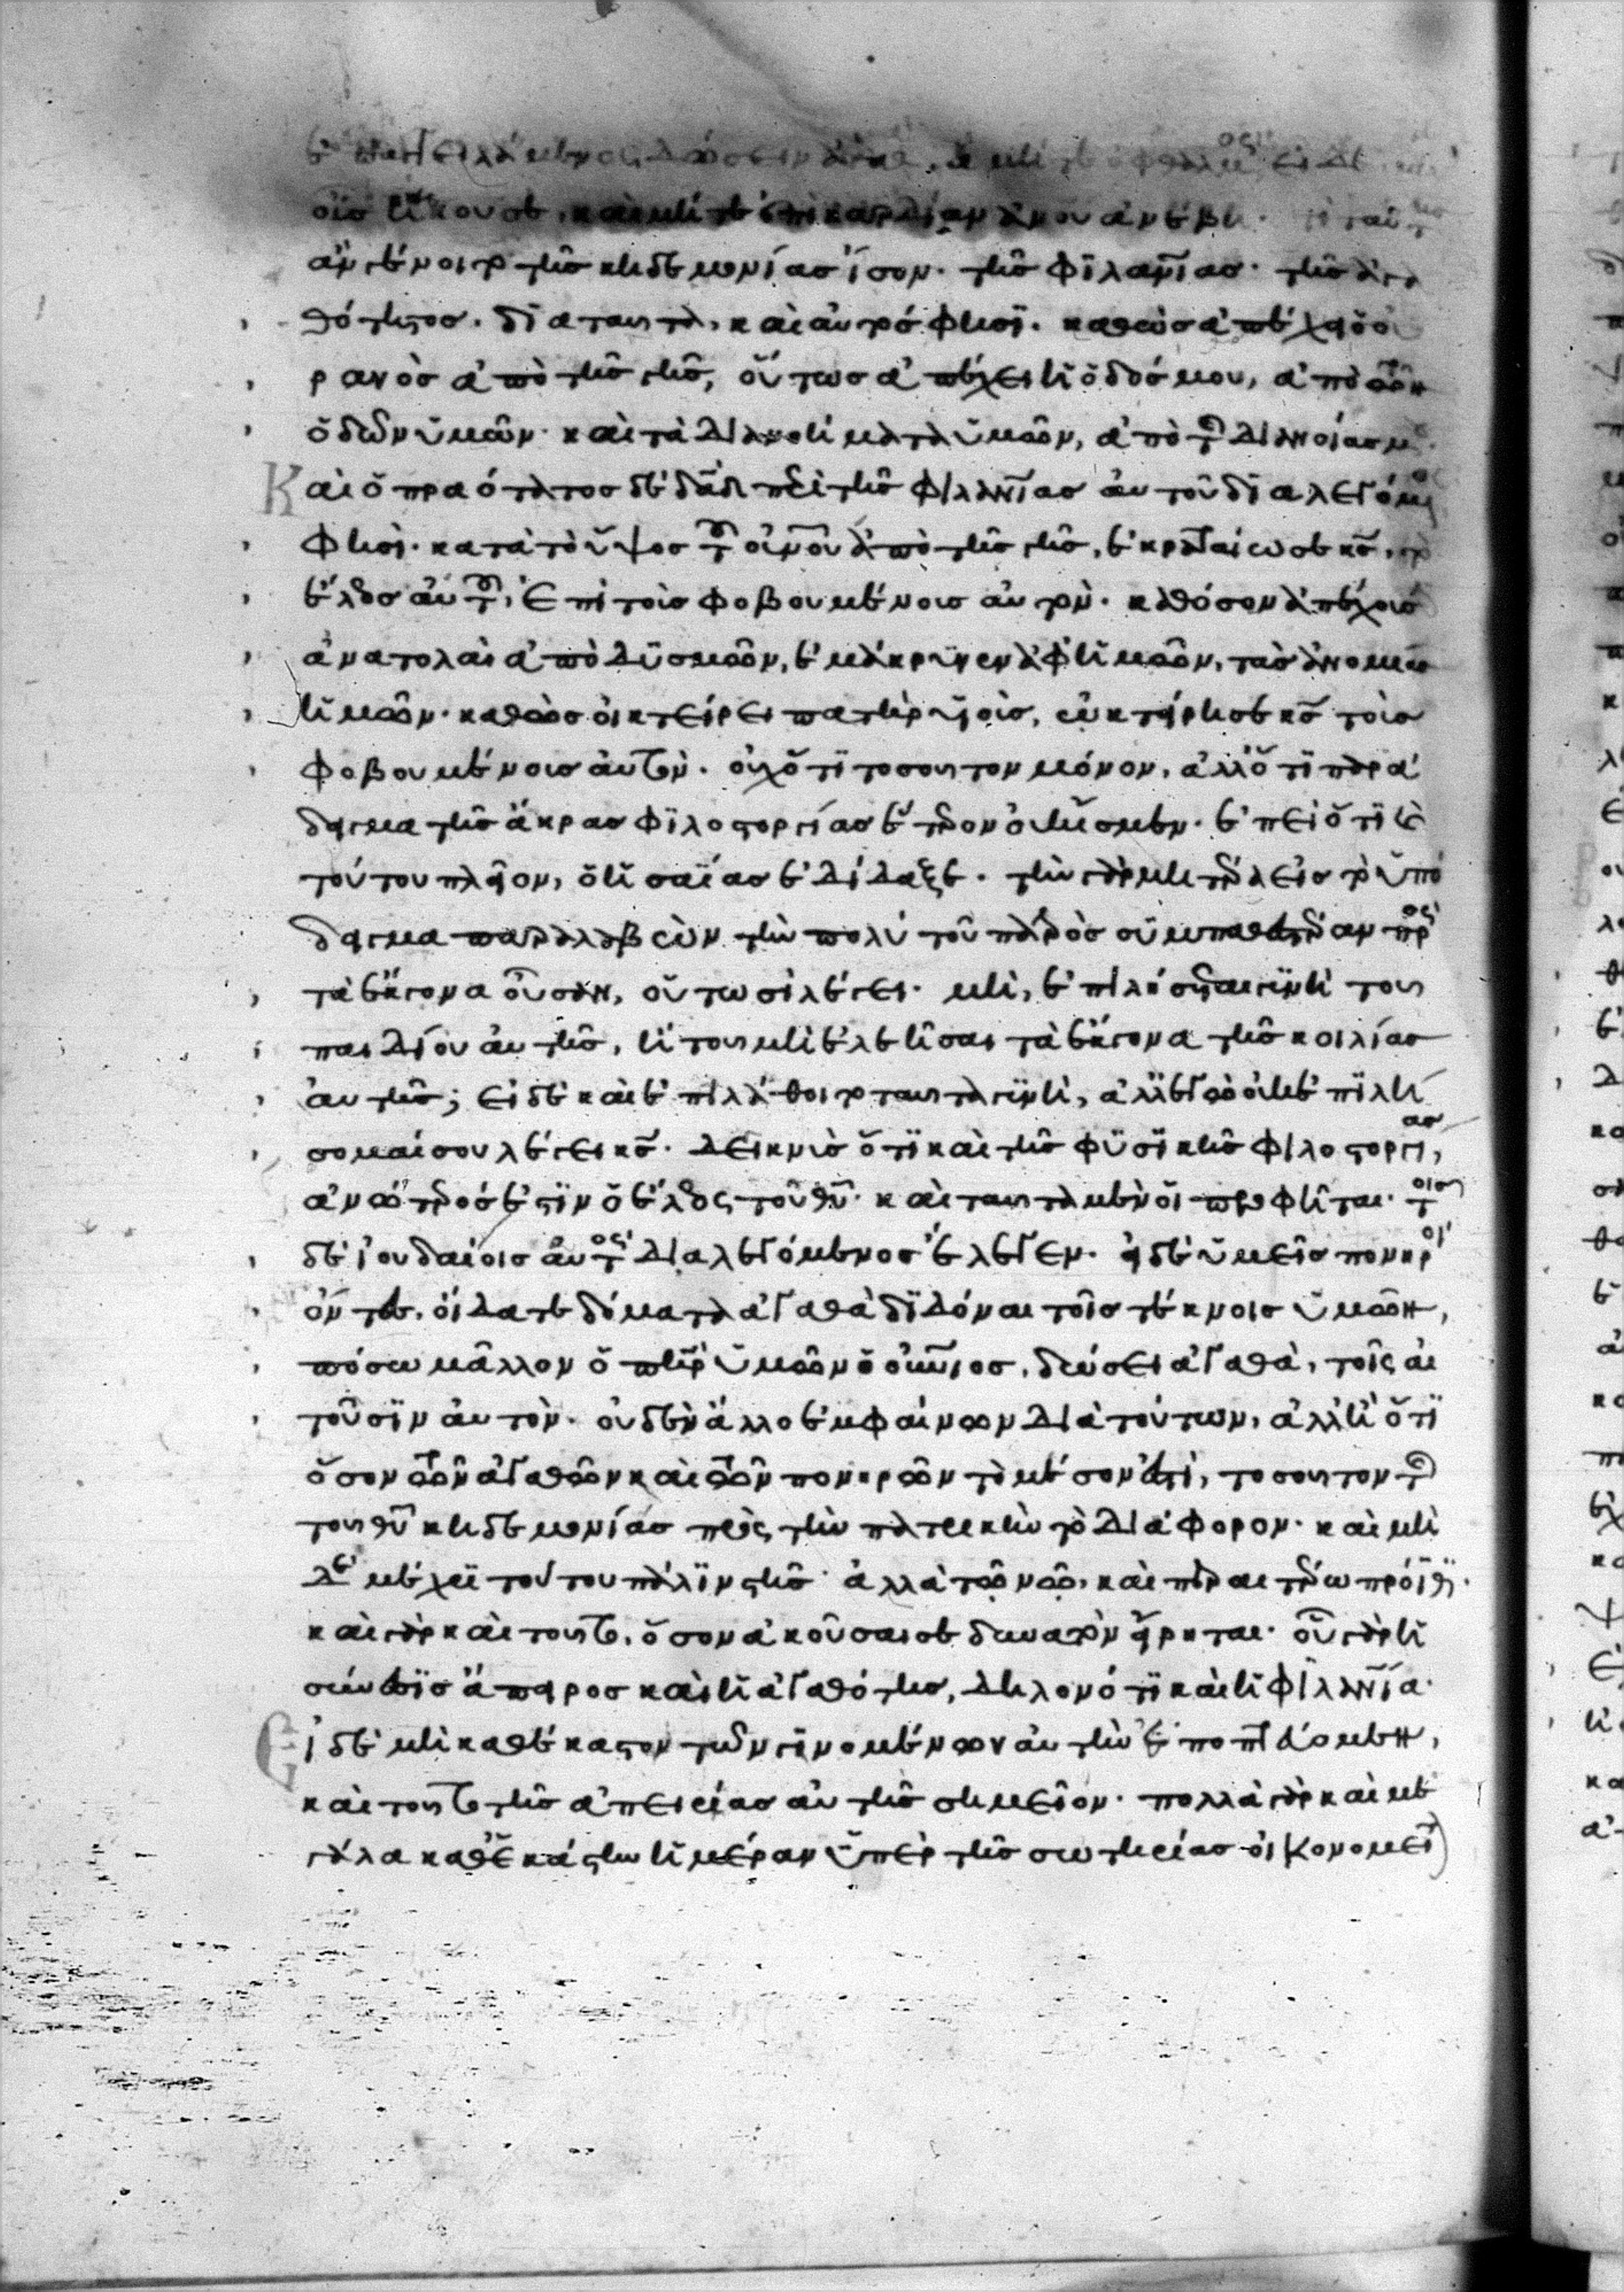 οἷς ἥκουσε, καὶ μὴ ἐπὶ καρδίαν ἀνου ἀνέβη. τί ταύτης
ἂν γένοιτο τῆς κηδεμονίας ἴσον· τῆς φιλανίας· τῆς ἀγα
θότητος. διαταυτα, καὶ αὐτό φησι. καθὼς ἀπέχει ὁ οὐ
ρανὸς ἀπὸ τῆς γῆς, οὕτως ἀπέχει ἡ ὁδός μου, ἀπὸ τῶν
ὁδῶν ὑμῶν· καὶ τὰ διανοήματα ὑμῶν, ἀπὸ τ διανοίας μου.
Καὶ ὁ πραότατος δὲ δαδ περὶ τῆς φιλανίας αὐτοῦ διαλεγόμενος
φησί· κατὰ τὸ ὕψος τοῦ οὐνοῦ ἀπὸ τῆς γῆς, ἐκραταίωσε κς, τὸ
ἔλεος αὐτοῦ, ἐπὶ τοῖς φοβουμένοις αὐτόν· καθόσον ἀπέχουσιν
ἀνατολαὶ ἀπὸ δυσμῶν, ἐμάκρυνεν ἀφ ἡμῶν, τὰς ἀνομίας
ἡμῶν· καθὼς οἰκτείρει πατὴρ υἱοὺς, ᾠκτείρησε κς τοὺς
φοβουμένους αὐτὸν· οὐχ ὅτι τοσοῦτον μόνον, ἀλλ ὅτι παρά
δειγμα τῆς ἄκρας φιλοστοργίας ἕτερον οὐκ ἴσμεν· ἐπεὶ ὅτι κ
τούτου πλεῖον, ὁ ἡσαΐας ἐδίδαξε. τὴν γὰρ μητέρα εἰς τὸ ὑπό
δειγμα παραλαβὼν τὴν πολὺ τοῦ πατρὸς συμπαθεστέραν πρὸς
τὰ ἔκγονα οὖσαν, οὕτωσὶ λέγει· μὴ, ἐπιλήσεται γυνὴ τοῦ
παιδίου αὐτῆς, ἢ τοῦ μὴ ἐλεῆσαι τὰ ἔκγονα τῆς κοιλίας
αὐτῆς; εἰ δὲ καὶ ἐπιλάθοιτο ταῦτα γυνὴ, ἀλλ ἐγὼ οὐκ ἐπιλή
σομαί σου λέγει κς· δεικνὺς ὅτι καὶ τῆς φυσικῆς φιλοστοργίας,
ἀνώτερός ἐστιν ὁ ἔλεος τοῦ θυ· καὶ ταῦτα μὲν ὁ προφήτης. τοῖς
δὲ ἰουδαίοις αὐτὸς διαλεγόμενος ἔλεγεν· εἰ δὲ ὑμεῖς πονηροὶ
ὄντες, οἴδατε δόματα ἀγαθὰ διδόναι τοῖς τέκνοις ὑμῶν,
πόσω μᾶλλον ὁ πηρ ὑμῶν ὁ οὐνιος, δώσει ἀγαθὰ, τοῖς αἰ
τοῦσιν αὐτόν· οὐδὲν ἄλλο ἐμφαίνων διὰ τούτων, ἀλλ ἢ ὅτι
ὅσον τῶν ἀγαθῶν καὶ τῶν πονηρῶν τὸ μέσον ἐστὶ, τοσοῦτον τῆς
τοῦ θυ κηδεμονίας πρὸς τὴν πατρικὴν τὸ διάφορον· καὶ μὴ
δὲ μέχρι τούτου πάλιν στῆς· ἀλλὰ τῷ νῷ, καὶ περαιτέρω πρόϊθι.
καὶ γὰρ καὶ τοῦτο, ὅσον ἀκοῦσαί σε δυνατὸν εἴρηται· οὗ γὰρ ἡ
σύνεσις ἄπειρος καὶ ἡ ἀγαθότης, δηλονότι καὶ ἡ φιλανία·
Εἰ δὲ μὴ καθέκαστον τῶν γινομένων αὐτὴν ἐποπτεύομεν,
καὶ τοῦτο τῆς ἀπειρίας αὐτῆς σημεῖον· πολλὰ γὰρ καὶ με
γάλα καθ ἑκάστην ἡμέραν ὑπὲρ τῆς σωτηρίας οἰκονομεῖ